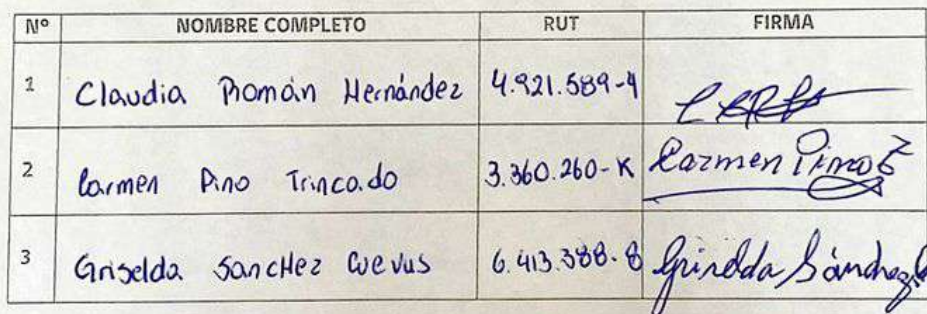 Nº NOMBRE COMPLETO RUT FIRMA
1 Claudia Román Hernández 4.921.589-4
2 Carmen Pino Trincado 3.360.260-K Carmen Pino
3 Griselda SancHez Cuevus 6.413.388-8 Griselda Sánchez